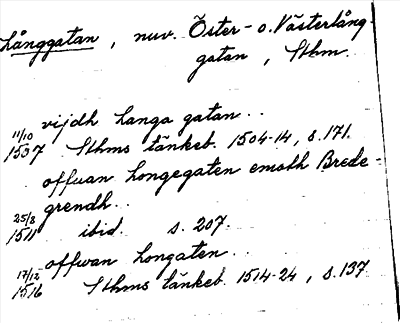 Långgatan, nuv. Öster- o. Västerlång-
gatan, Sthm.
vijdh langa gatan..
11/10 1507 Sthms tänkeb. 1504-14, s. 171.
offuan longegaten emoth Brede-
grendh..
25/8 1511 ibid. s. 207.
offwan longaten..
17/12 1516 Sthms tänkeb. 1514-24, s. 137